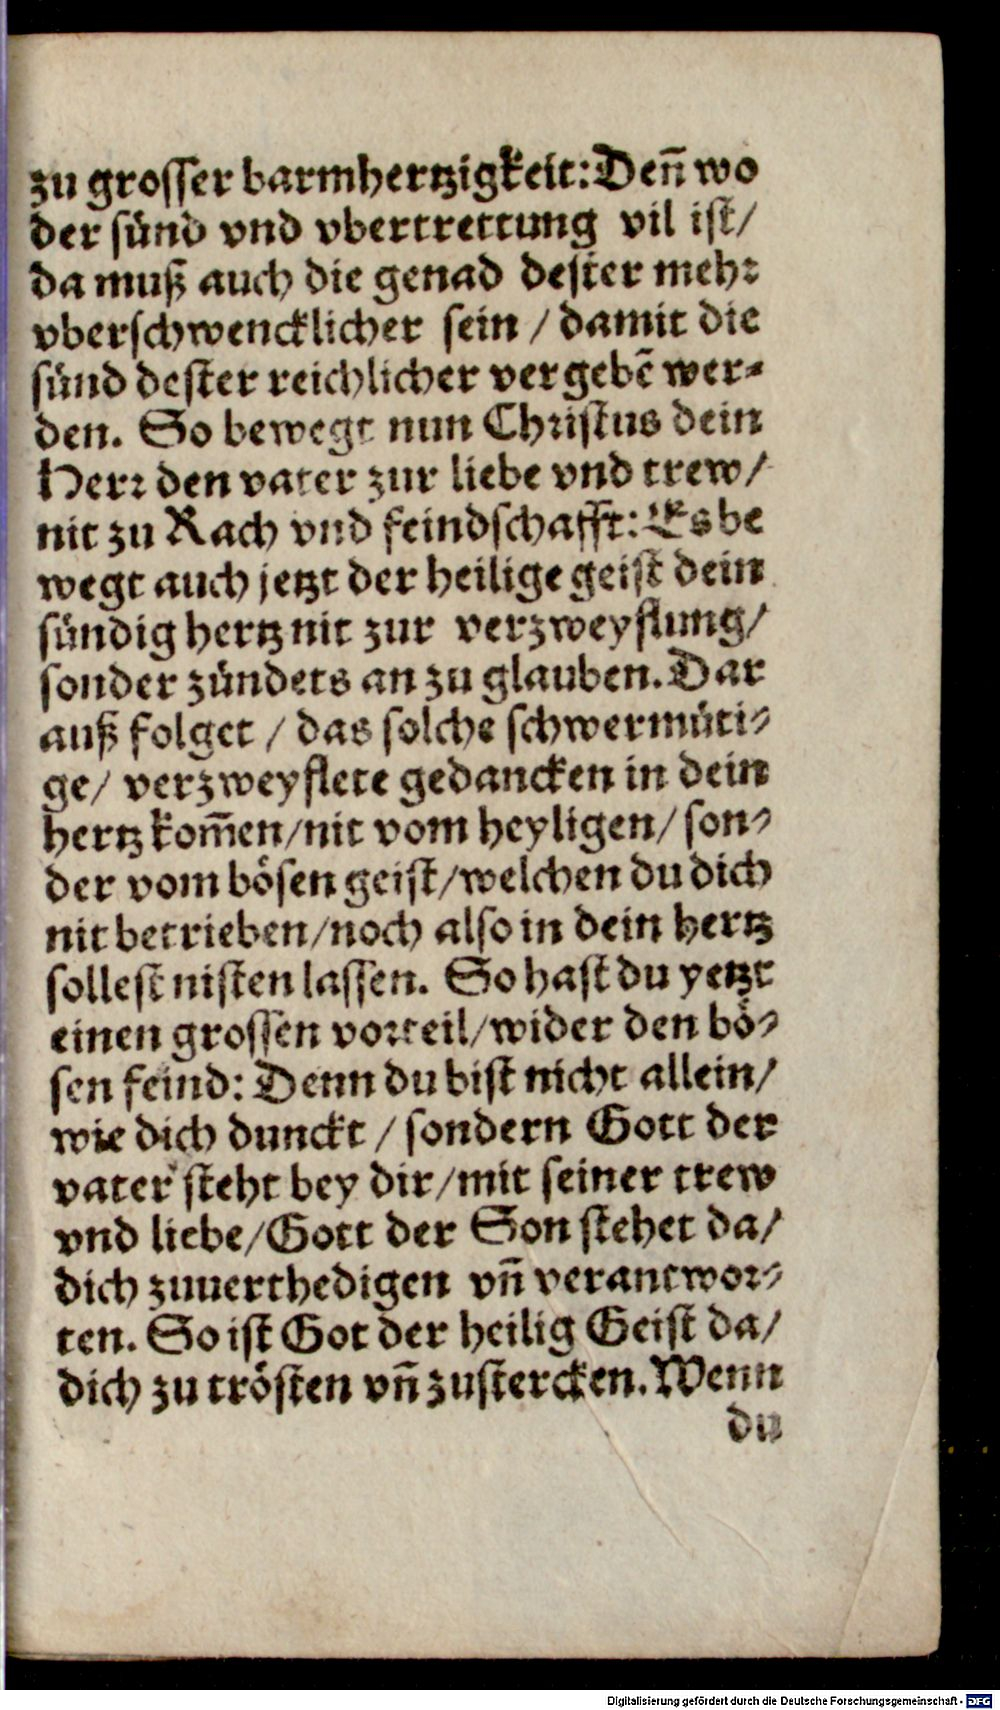 zu grosser barmhertzigkeit: Deñ wo
der sünd vnd vbertrettung vil ist/
da muß auch die genad dester mehr
vberschwencklicher sein / damit die
sünd dester reichlicher vergebẽ wer-
den. So bewegt nun Christus dein
Herr den vater zur liebe vnd trew/
nit zu Rach vnd feindschafft: Es be
wegt auch jetzt der heilige geist dein
sündig hertz nit zur verzweyflung/
sonder zündets an zu glauben. Dar
auß folget / das solche schwermüti-
ge/ verzweyflete gedancken in dein
hertz kom̃en/nit vom heyligen/ son-
der vom bösen geist/welchen du dich
nit betrieben/noch also in dein hertz
sollest nisten lassen. So hast du yetzt
einen grossen vorteil/wider den bö-
sen feind: Denn du bist nicht allein/
wie dich dunckt / sondern Gott der
vater steht bey dir/mit seiner trew
vnd liebe/Gott der Son stehet da/
dich zuuerthedigen vñ verantwor-
ten. So ist Got der heilig Geist da/
dich zu trösten vñ zustercken. Wenn
du
Digitalisierung gefördert durch die Deutsche Forschungsgemeinschaft - DFG